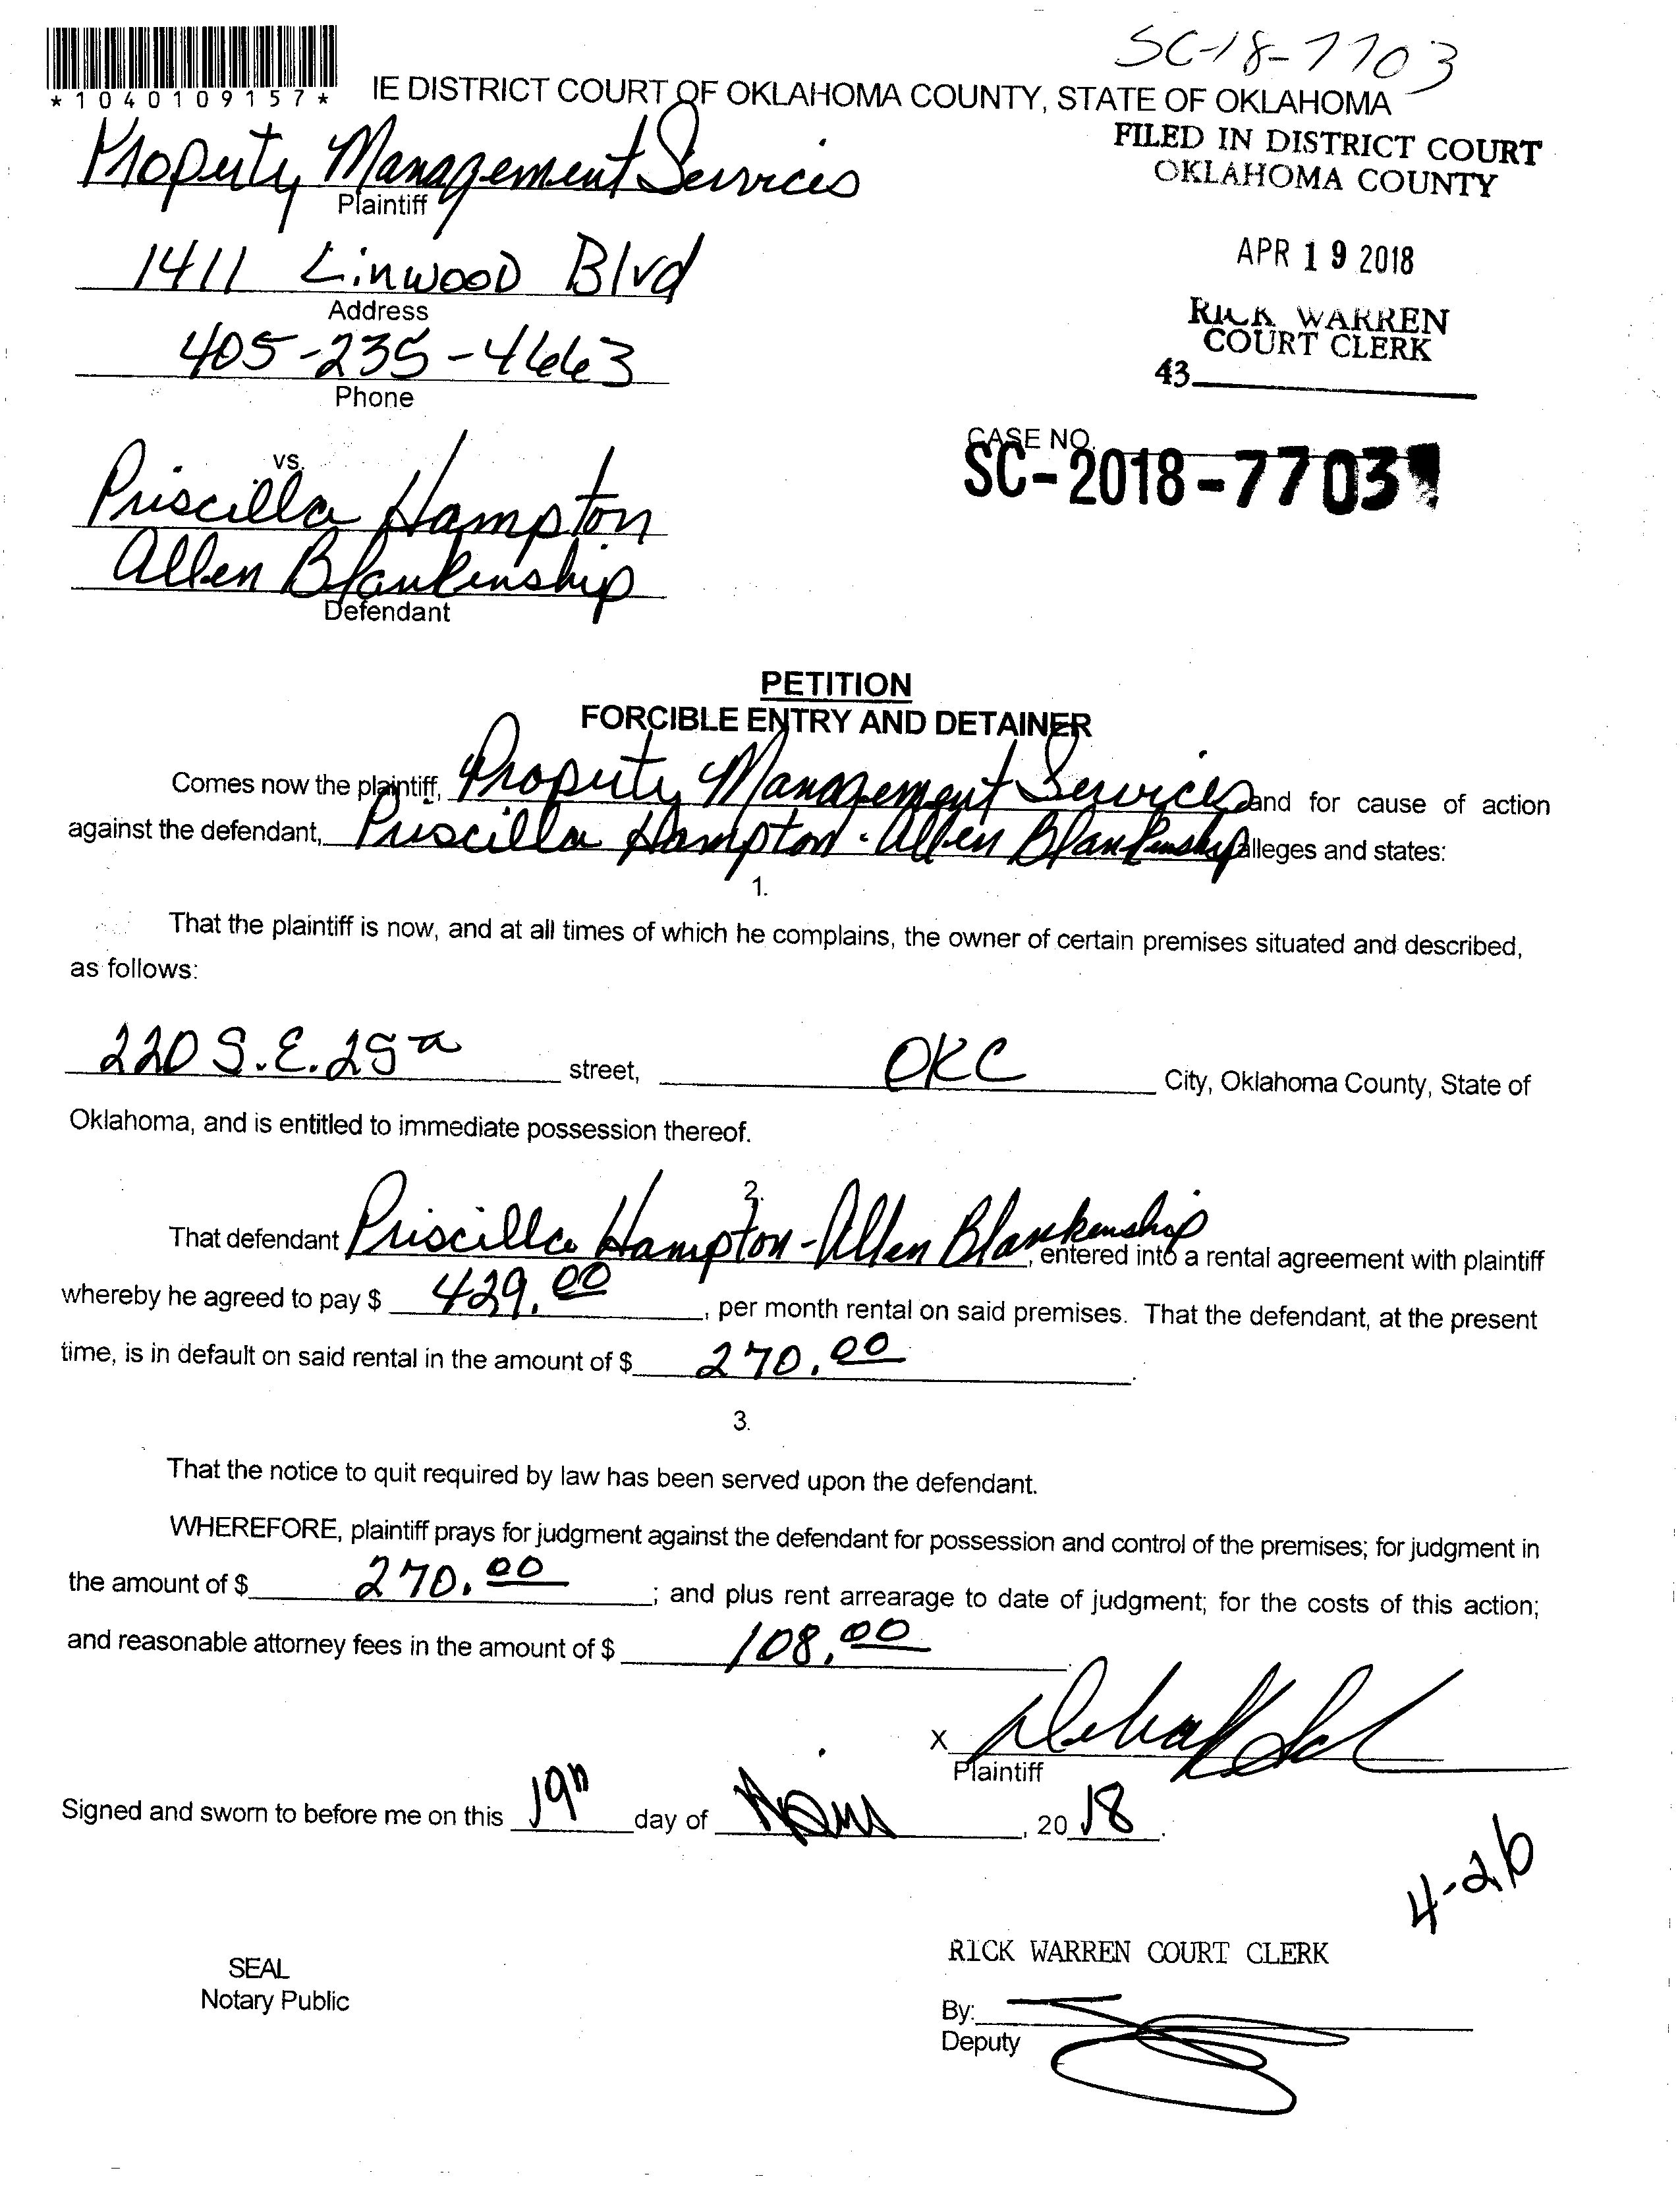 SC-18-7703
*1040109157*
IE DISTRICT COURT OF OKLAHOMA COUNTY, STATE OF OKLAHOMA
FILED IN DISTRICT COURT
OKLAHOMA COUNTY
Property Management Services
Plaintiff
APR 19 2018
1411 Linwood Blvd
Address
RICK WARREN
COURT CLERK
405-235-4663
43
Phone
CASE NO.
SC-2018-7703
vs.
Priscilla Hampton
Allen Blankenship
Defendant
PETITION
FORCIBLE ENTRY AND DETAINER
Comes now the plaintiff, Property Management Services and for cause of action
against the defendant, Priscilla Hampton - Allen Blankenship alleges and states:
1.
That the plaintiff is now, and at all times of which he complains, the owner of certain premises situated and described,
as follows:
220 S.E. 25th street, OKC City, Oklahoma County, State of
Oklahoma, and is entitled to immediate possession thereof.
2.
That defendant Priscilla Hampton - Allen Blankenship, entered into a rental agreement with plaintiff
whereby he agreed to pay $ 429.00, per month rental on said premises. That the defendant, at the present
time, is in default on said rental in the amount of $ 270.00.
3.
That the notice to quit required by law has been served upon the defendant.
WHEREFORE, plaintiff prays for judgment against the defendant for possession and control of the premises; for judgment in
the amount of $ 270.00; and plus rent arrearage to date of judgment; for the costs of this action;
and reasonable attorney fees in the amount of $ 108.00.
X
Plaintiff
Signed and sworn to before me on this 19th day of , 20 18.
4-26
RICK WARREN COURT CLERK
SEAL
Notary Public
By:
Deputy